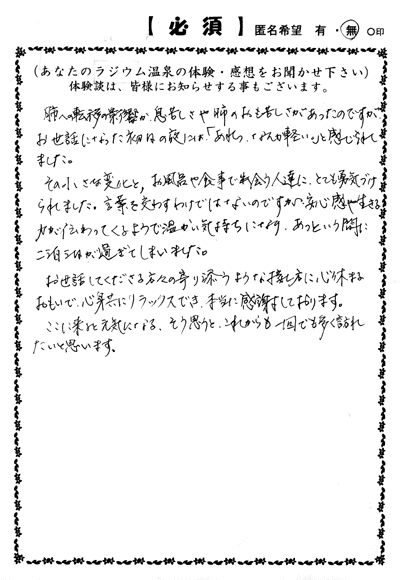 【必須】 匿名希望 有・無 ○印
(あなたのラジウム温泉の体験・感想をお聞かせ下さい)
体験談は、皆様にお知らせする事もございます。
肺への転移の影響か、息苦しさや肺のおも苦しさがあったのですが、
お世話になった初日の夜には、「あれっ、なんか軽い。」と感じられて
ました。
その小さな変化と、お風呂や食事で出会う人達に、とても勇気づけ
られました。言葉を交わすわけではないのですが、安心感や生きる
力が伝わってくるようで温かい気持ちになり、あっという間に
二泊三日が過ぎてしまいました。
お世話してくださる方々の寄り添うような接し方に、心休まる
おもいで、心身共にリラックスでき、本当に感謝しております。
ここに来ると元気になる、そう思うと、これからも一回でも多く訪れ
たいと思います。